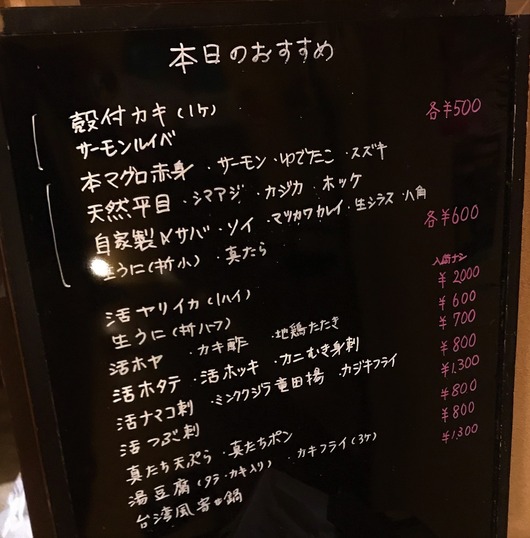 本日のおすすめ
殻付カキ(1ケ) 各¥500
サーモンルイベ
本マグロ赤身・サーモン・ゆでたこ・スズキ
天然平目・シマアジ・カジカ・ホッケ
自家製〆サバ・ソイ・マツカワカレイ・生シラス・八角 各¥600
生うに(折小)・真たら
活ヤリイカ(1ハイ) 入荷ナシ
生うに(折ハーフ) ¥2000
活ホヤ・カキ酢・地鶏たたき ¥600
活ホタテ・活ホッキ・カニむき身刺 ¥700
活ナマコ刺・ミンククジラ竜田揚・カジキフライ ¥800
活つぶ刺 ¥1,300
真たち天ぷら・真たちポン ¥800
湯豆腐(タラ・カキ入り)・カキフライ(3ケ) ¥800
台湾風寄せ鍋 ¥1300